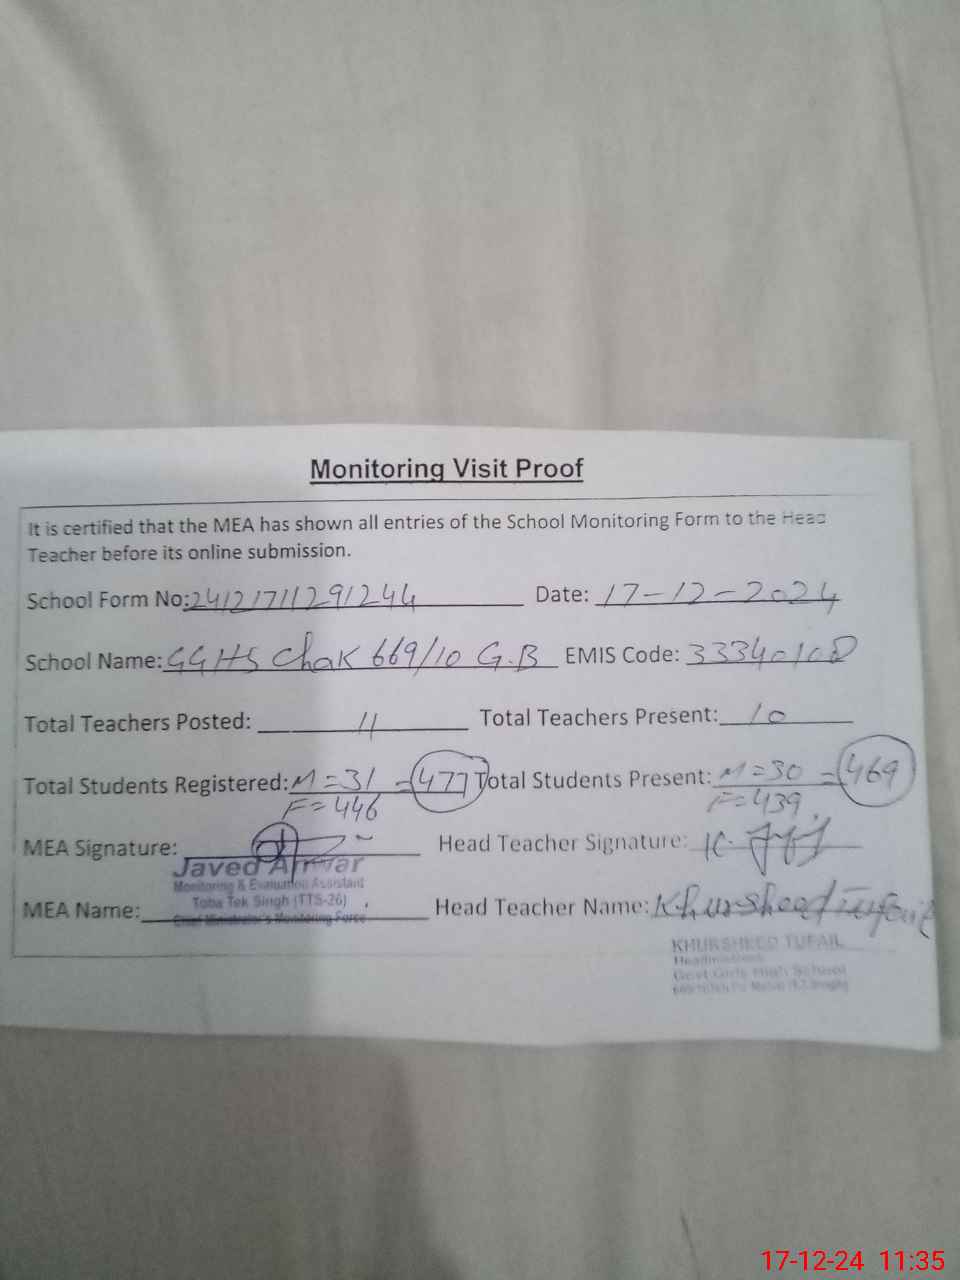 Monitoring Visit Proof
It is certified that the MEA has shown all entries of the School Monitoring Form to the Head
Teacher before its online submission.
School Form No: 24121711291244 Date: 17-12-2024
School Name: GGHS Chak 669/10 G.B EMIS Code: 33340108
Total Teachers Posted: 11 Total Teachers Present: 10
Total Students Registered: M=31 = 477 Total Students Present: M=30 = 469
F=446 F=439
MEA Signature: Head Teacher Signature:
Javed Anwar
Monitoring & Evaluation Assistant
Toba Tek Singh (TTS-26)
MEA Name: Head Teacher Name: Khursheed Tufail
Chief Minister's Monitoring Force
KHURSHEED TUFAIL
Headmistress
Govt Girls High School
17-12-24 11:35